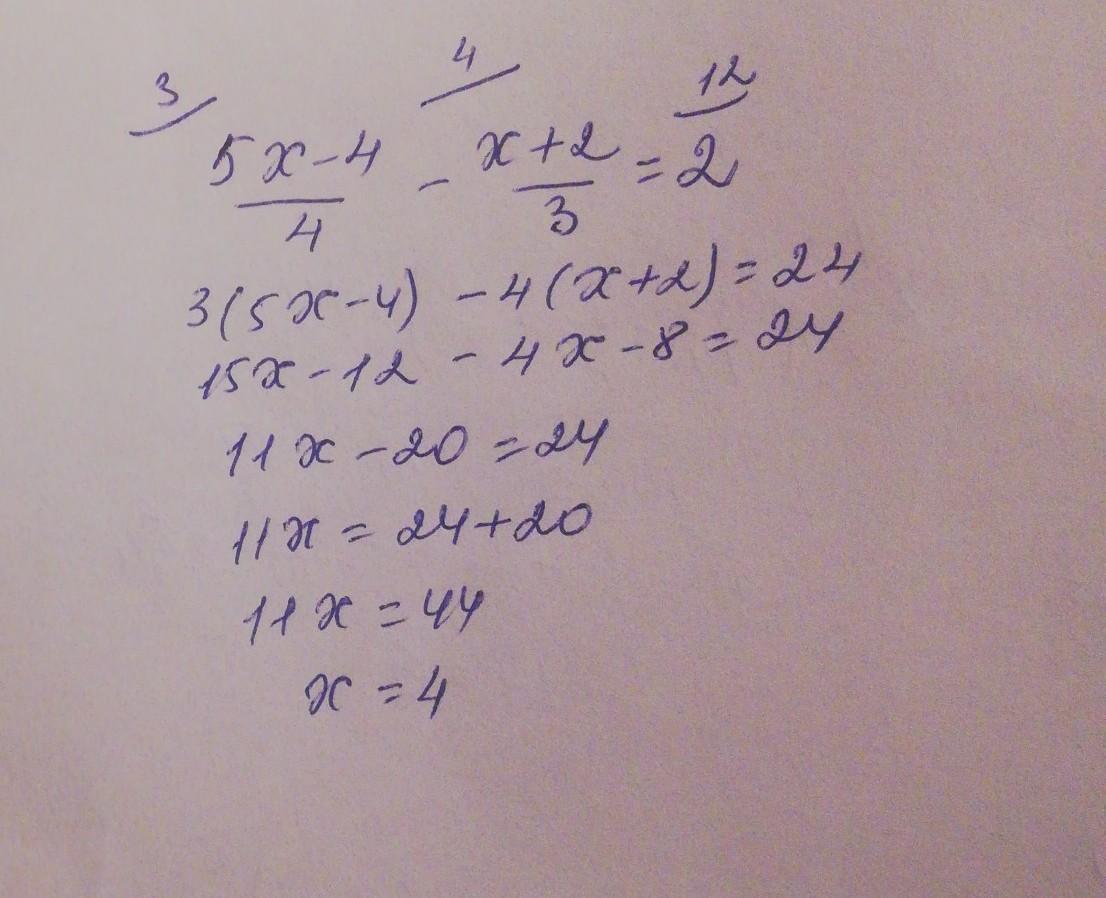 3 4 12
5x-4 - x+2 = 2
4 3
3(5x-4) - 4(x+2) = 24
15x-12 - 4x-8 = 24
11x-20 = 24
11x = 24+20
11x = 44
x = 4